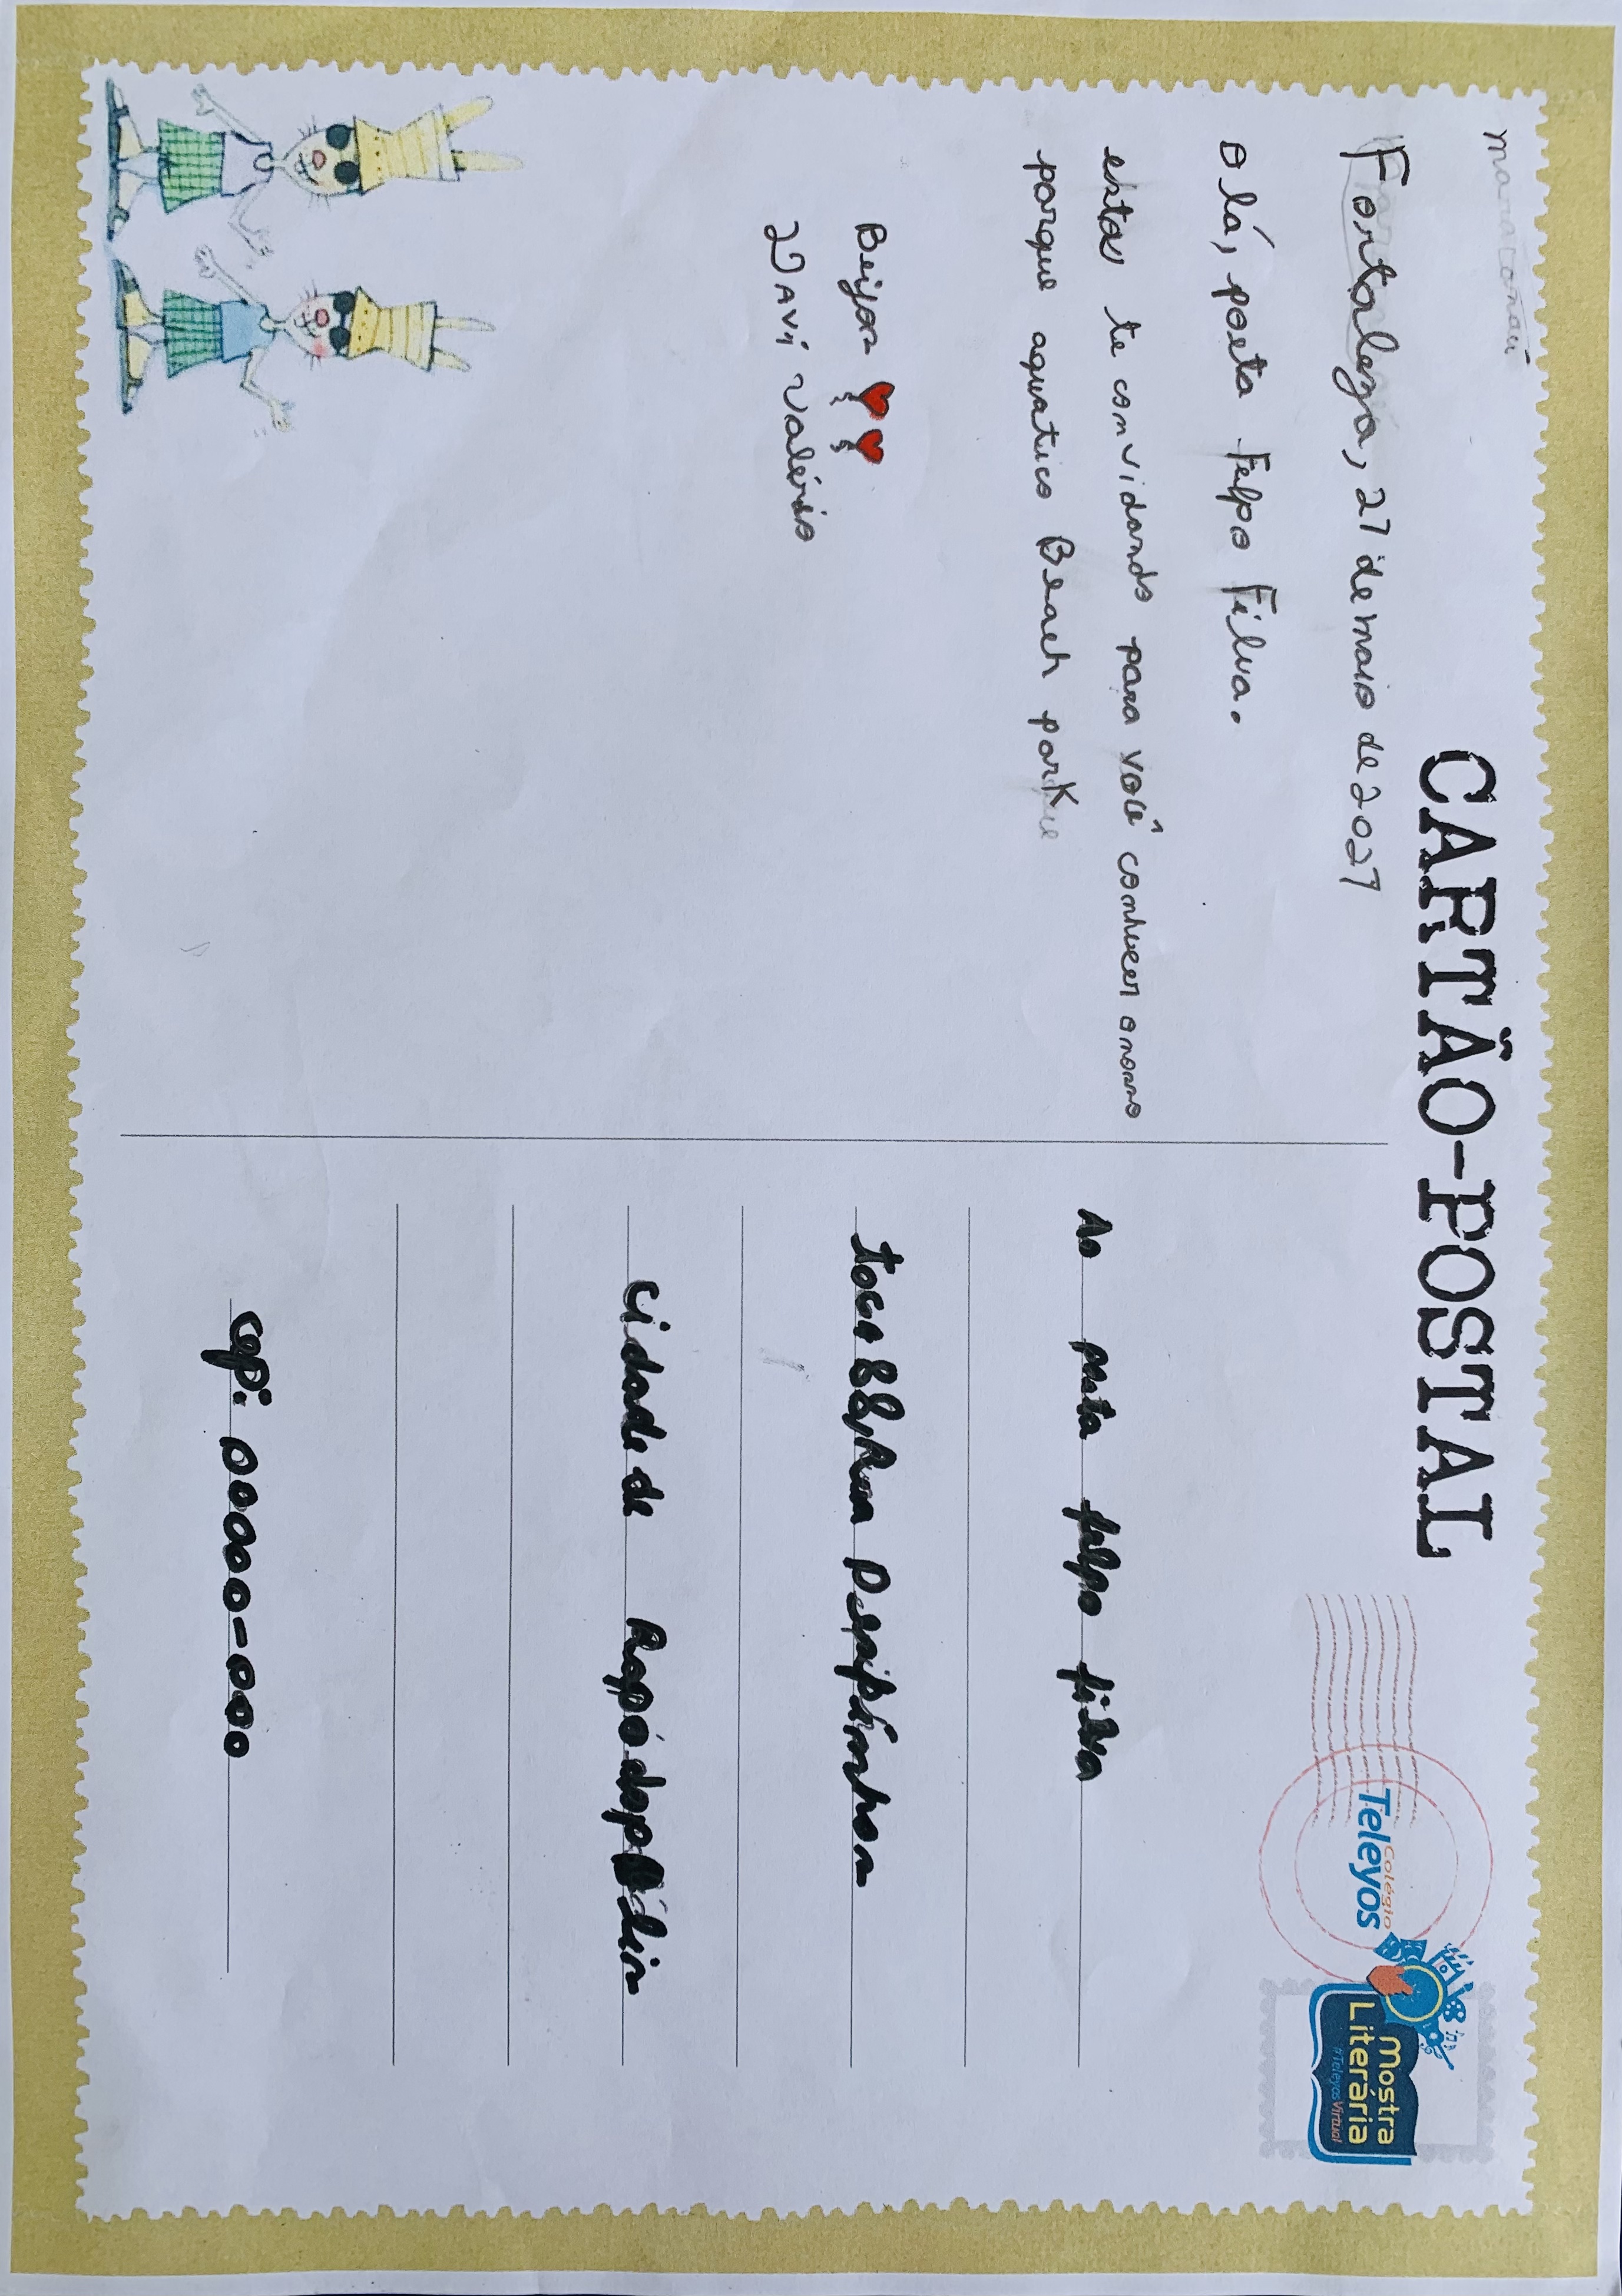 CARTÃO-POSTAL
maracanaú
Fortaleza, 27 de maio de 2027
Olá, poeta Felpo Filva.
estou te convidando para você conhecer o nosso
parque aquatico Beach park
Beijos
Davi Valério
Colégio
Teleyos
Mostra
Literária
#TeleyosVirtual
Ao poeta felpo filva
toca 88, Rua Despinhos
cidade de Rapó
cep: 00000-000